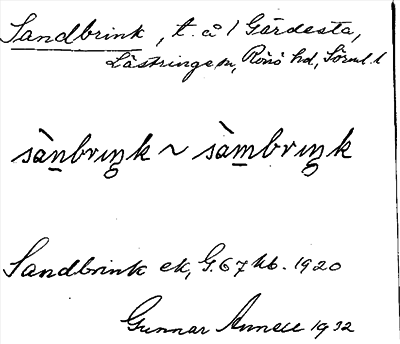 Sandbrink, t. å 1 Gärdesta,
Lästringe sn, Rönö hd, Sörml. l
sàn̲briŋk ~ sàm̲briŋk
Sandbrink ek, G. 67 kb. 1920
Gunnar Annell 1932